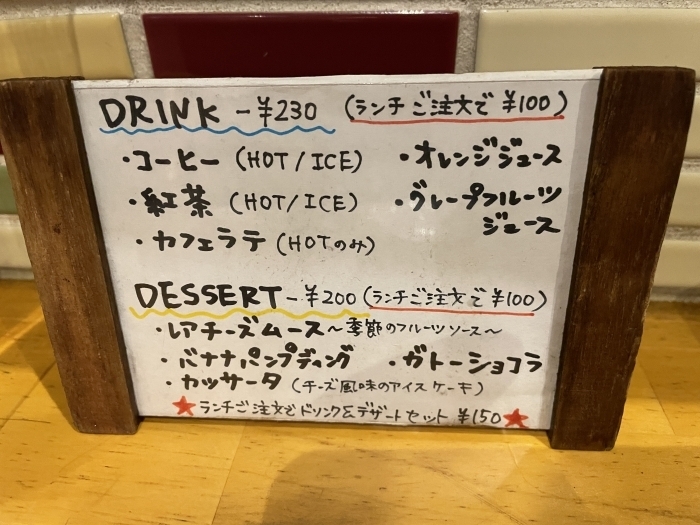 DRINK -¥230 (ランチご注文で ¥100)
・コーヒー (HOT/ICE) ・オレンジジュース
・紅茶 (HOT/ICE) ・グレープフルーツ
ジュース
・カフェラテ (HOTのみ)
DESSERT -¥200 (ランチご注文で ¥100)
・レアチーズムース~季節のフルーツソース~
・バナナパンプディング ・ガトーショコラ
・カッサータ (チーズ風味のアイスケーキ)
★ランチご注文でドリンク&デザートセット ¥150★